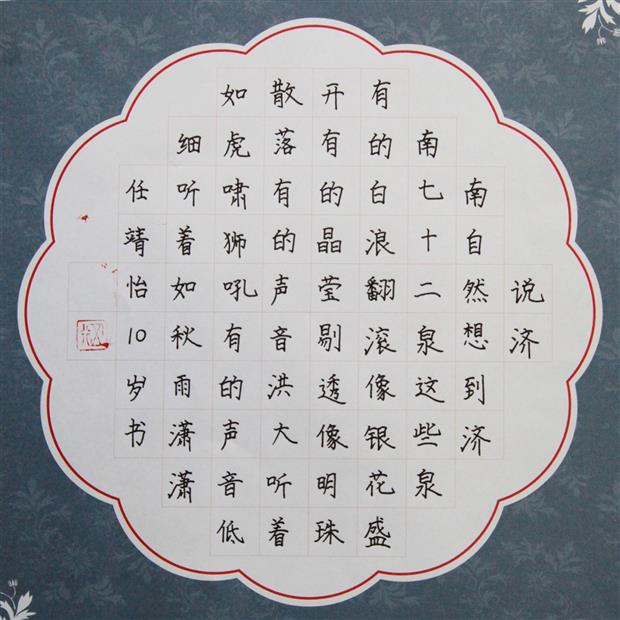 说济
南自然想到济
南七十二泉这些泉
有的白浪翻滚像银花盛
开有的晶莹剔透像明珠
散落有的声音洪大听着
如虎啸狮吼有的声音低
细听着如秋雨潇潇
任靖怡10岁书